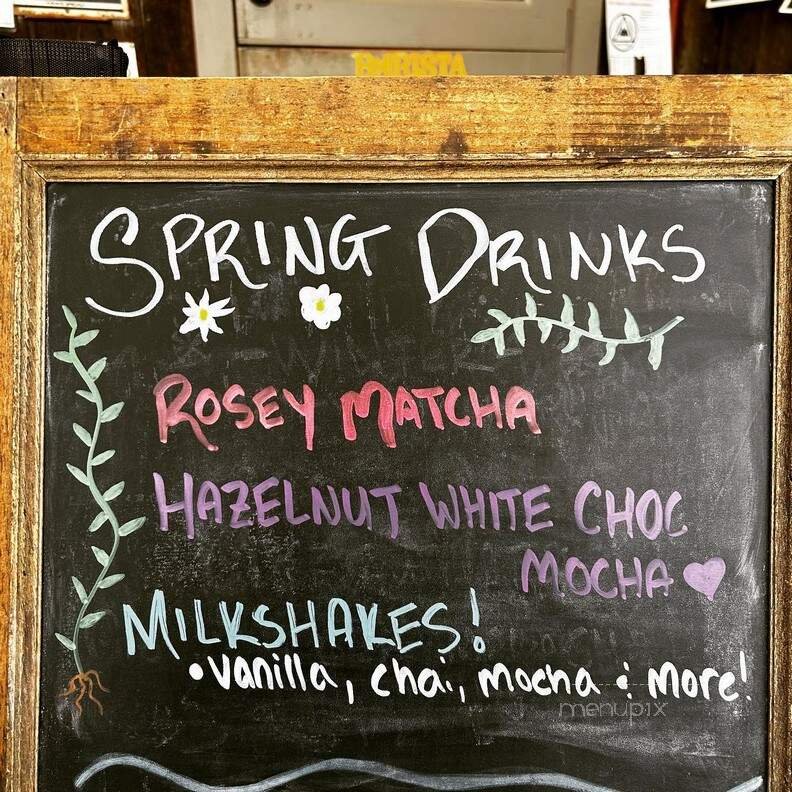 BARISTA
SPRING DRINKS
ROSEY MATCHA
HAZELNUT WHITE CHOC
MOCHA
MILKSHAKES!
• vanilla, chai, mocha & more!
menupix